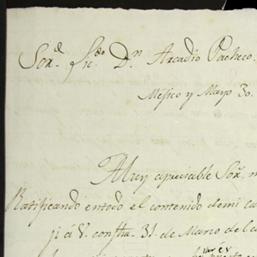 Sor. D. Dn. Arcadio Pacheco.
Mexico y Mayo 30.
Muy apreciable Sor. m
Ratificando entodo el contenido demi ca
ji á V. confha. 31. de Marzo del c